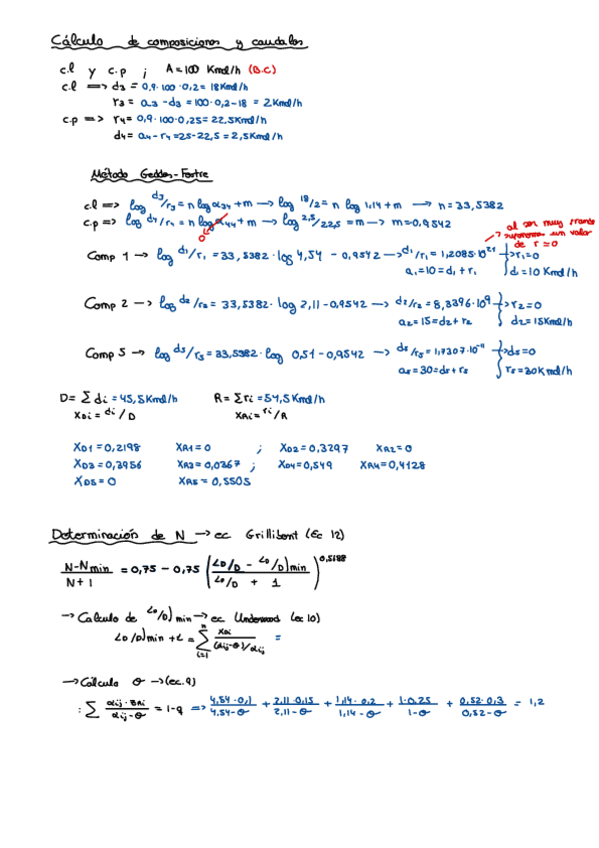 Cálculo de composiciones y caudales
c.l y c.p ; A=100 Kmol/h (B.C)
c.l => d3 = 0,9·100·0,2 = 18 Kmol/h
r3 = a3 - d3 = 100·0,2-18 = 2 Kmol/h
c.p => r4 = 0,9·100·0,25 = 22,5 Kmol/h
d4 = a4 - r4 = 25-22,5 = 2,5 Kmol/h
Método Geddes-Fortre
c.l => log d3/r3 = n log α34 + m -> log 18/2 = n log 1,14 + m -> n = 33,5382
c.p => log d4/r4 = n log α44 + m -> log 2,5/22,5 = m -> m = 0,9542
0
al ser muy grande
un valor
de r ≃ 0
Comp 1 -> log d1/r1 = 33,5382 · log 4,54 - 0,9542 -> d1/r1 = 1,2085·10^21 -> r1 = 0
a1 = 10 = d1 + r1 d1 = 10 Kmol/h
Comp 2 -> log d2/r2 = 33,5382 · log 2,11 - 0,9542 -> d2/r2 = 8,3396·10^9 -> r2 = 0
a2 = 15 = d2 + r2 d2 = 15 Kmol/h
Comp 5 -> log d5/r5 = 33,5382 · log 0,51 - 0,9542 -> d5/r5 = 1,7307·10^-11 -> d5 = 0
a5 = 30 = d5 + r5 r5 = 30 Kmol/h
D = Σ di = 45,5 Kmol/h R = Σ ri = 54,5 Kmol/h
XDi = di/D XRi = ri/R
XD1 = 0,2198 XR1 = 0 ; XD2 = 0,3297 XR2 = 0
XD3 = 0,3956 XR3 = 0,0367 ; XD4 = 0,549 XR4 = 0,4128
XD5 = 0 XR5 = 0,5505
Determinación de N -> ec Grillibont (Ec 12)
N-Nmin / N+1 = 0,75 - 0,75 (L0/D - L0/D)min / L0/D + 1)^0,5188
-> Calculo de L0/D)min -> ec Underwood (ec 10)
L0/D)min + L = Σ i=1 n XDi / (αij-θ)/αij =
-> Cálculo θ -> (ec.9)
: Σ αij·BAi / αij-θ = 1-q => 4,54·0,1 / 4,54-θ + 2,11·0,15 / 2,11-θ + 1,14·0,2 / 1,14-θ + 1·0,25 / 1-θ + 0,52·0,3 / 0,52-θ = 1,2